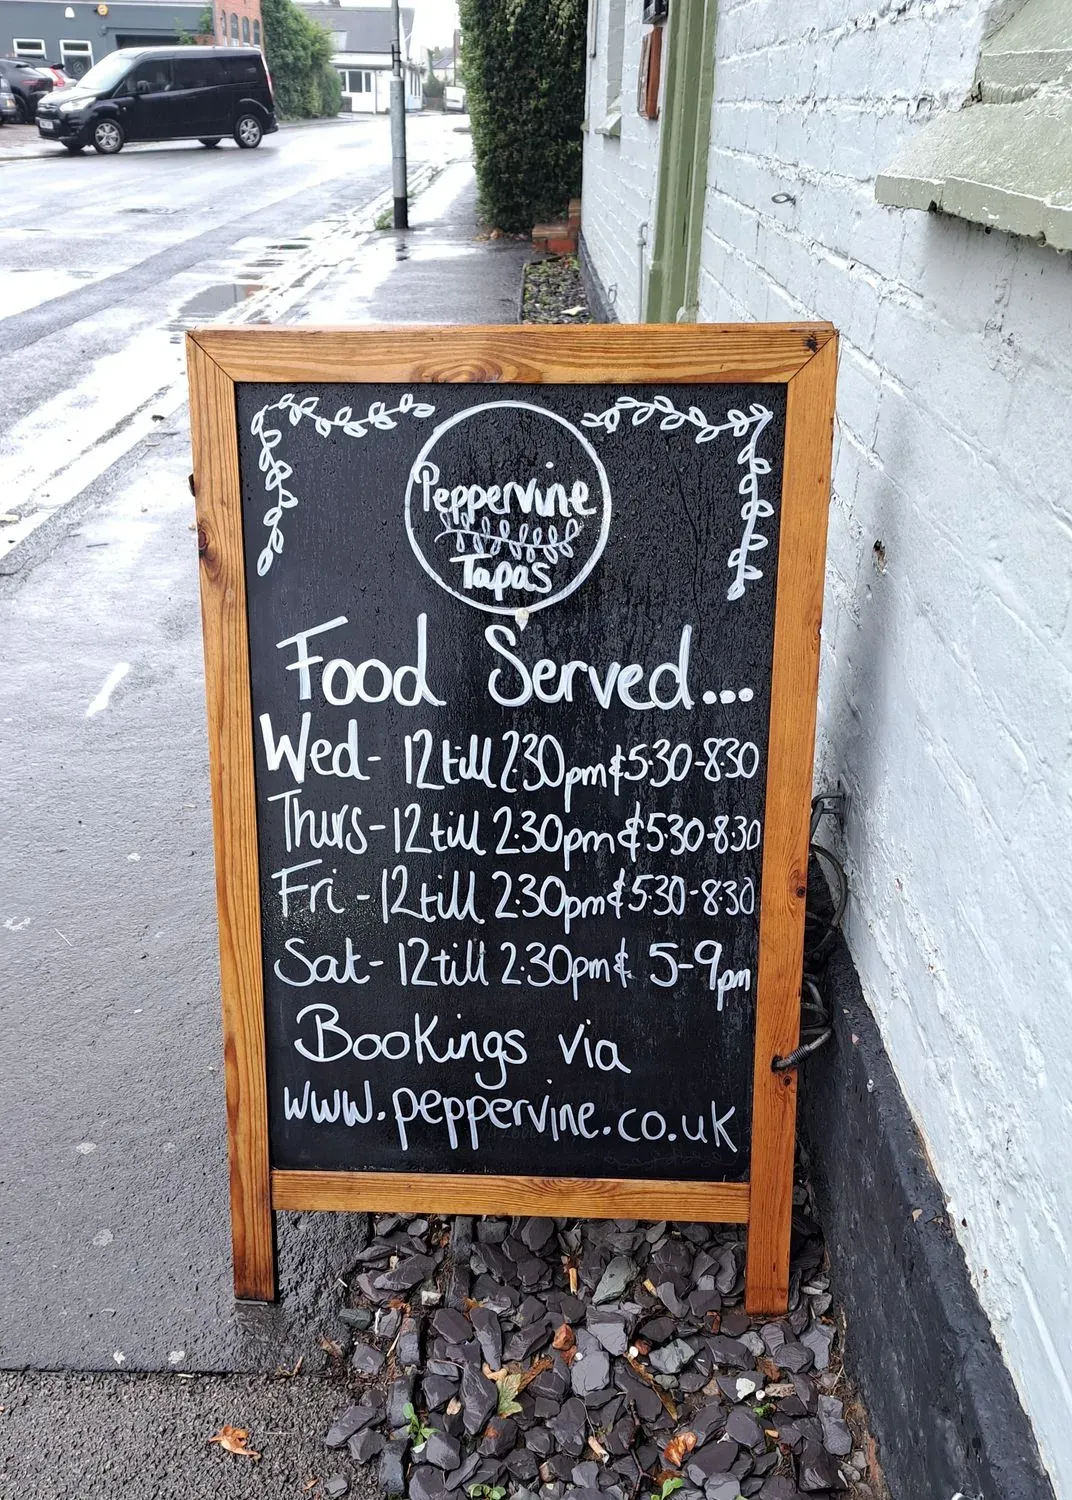 Peppervine
Tapas
Food Served...
Wed- 12 till 2·30pm & 5·30-8·30
Thurs- 12 till 2·30pm & 5·30-8·30
Fri - 12 till 2·30pm & 5·30-8·30
Sat- 12 till 2·30pm & 5-9pm
Bookings via
www.peppervine.co.uk